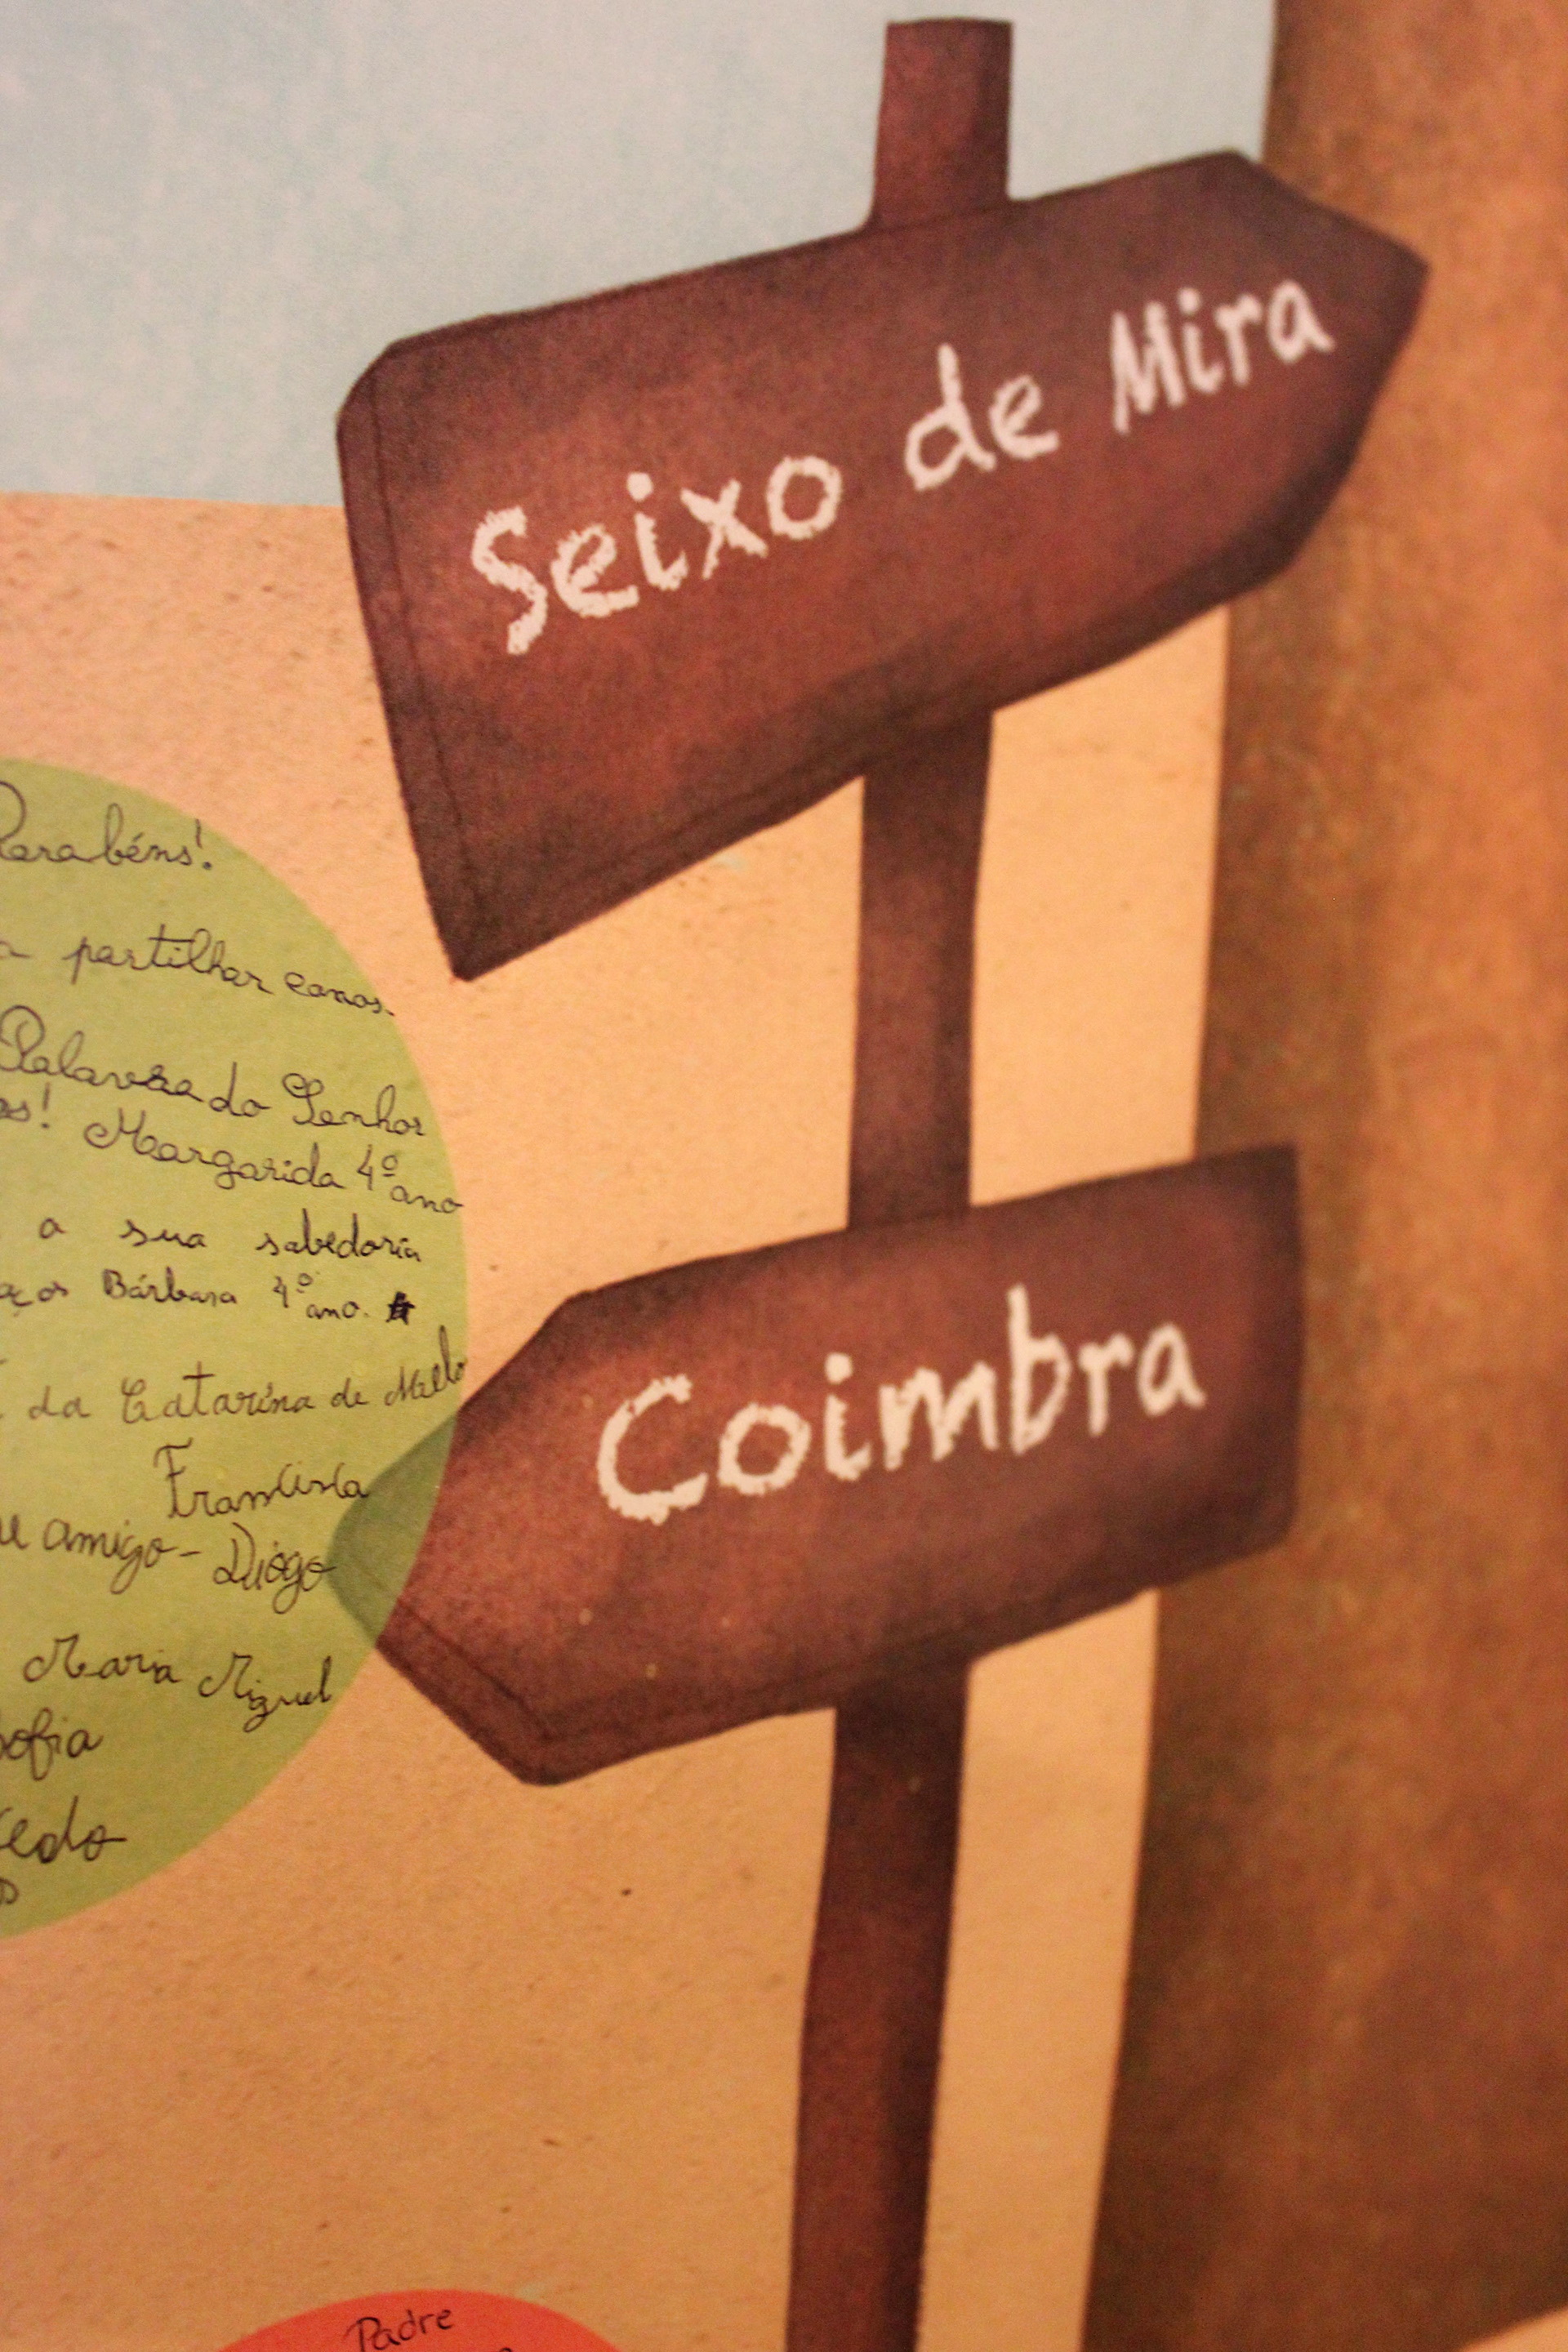 Seixo de Mira
Parabéns!
a partilhar conos-
Palavra do Senhor
os! Margarida 4º ano
a sua sabedoria
ços Bárbara 4º ano.
da Catarina de Mello
Francisca
amigo - Diogo
Maria Miguel
Sofia
Coimbra
Padre